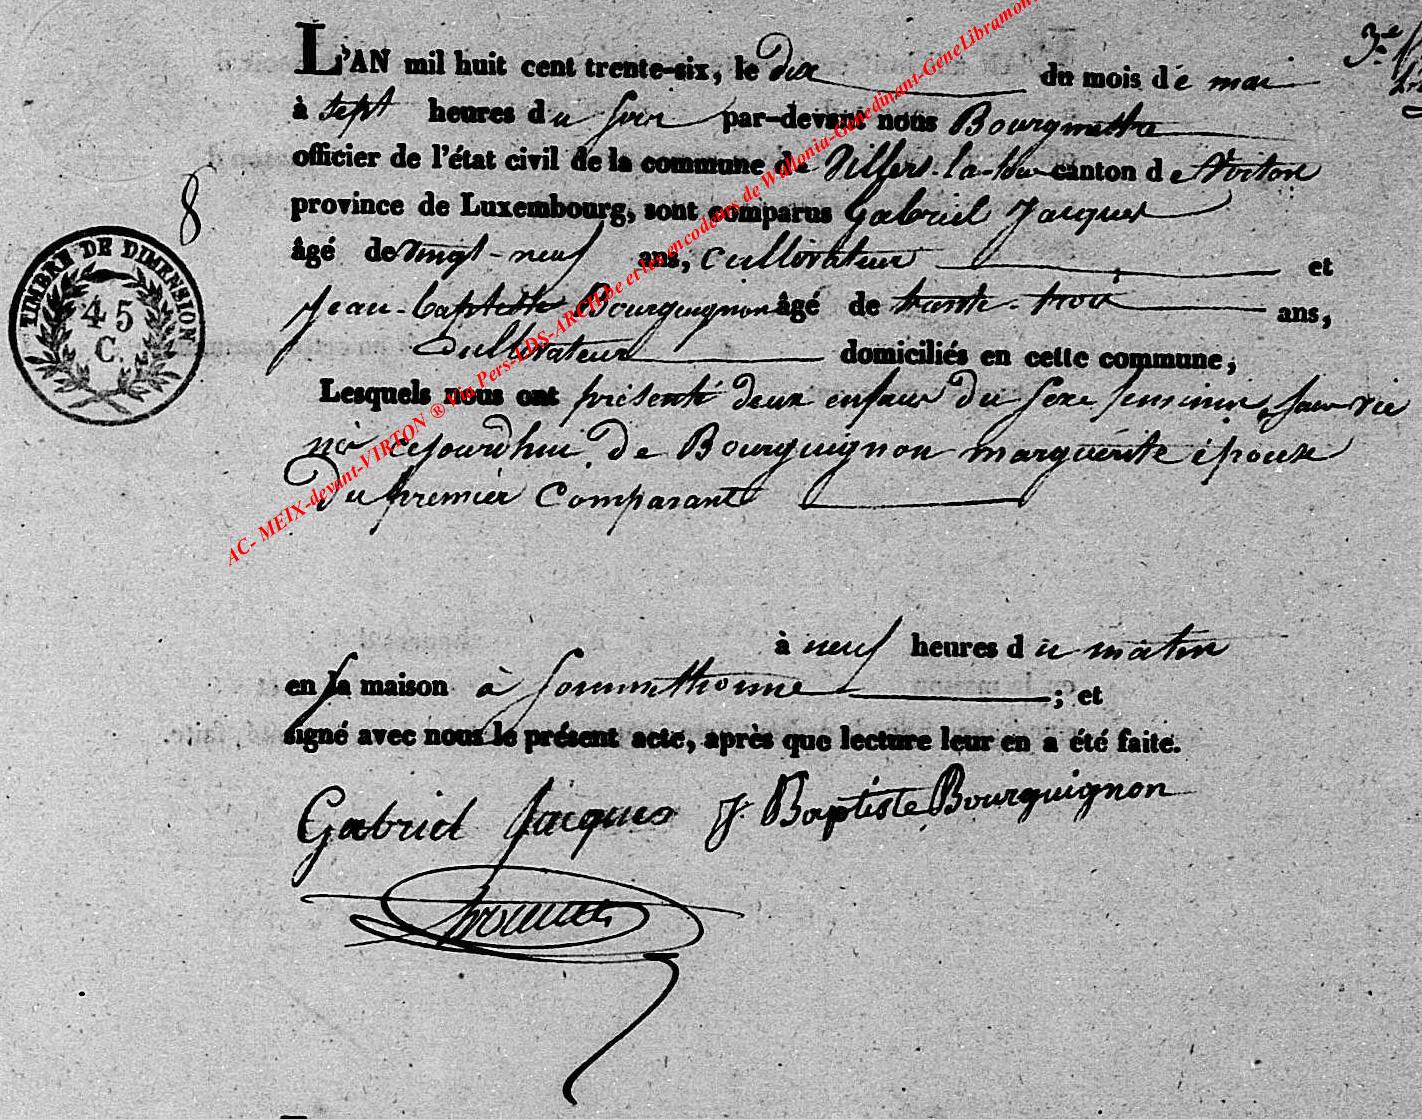 L'AN mil huit cent trente-six, le dix du mois de mai
à sept heures du soir par-devant nous Bourgmestre
officier de l'état civil de la commune de Villers-la-loue canton de Virton
province de Luxembourg, sont comparus Gabriel Jacques
âgé de vingt-neuf ans, cultivateur et
Jean-baptiste Bourguignon âgé de trente-trois ans,
Cultivateur domiciliés en cette commune,
Lesquels nous ont présenté deux enfans du sexe feminin, sans vie
nés cejourd'hui de Bourguignon marguerite épouse
Du premier Comparant
à neuf heures du matin
en sa maison à Sommethonne ; et
signé avec nous le présent acte, après que lecture leur en a été faite.
Gabriel Jacques J. Baptiste Bourguignon
8
TIMBRE DE DIMENSION
45
C.
3e
AC- MEIX-devant-VIRTON ® Via Pers-LDS-ARCH.be et les encodeurs de Wallonia-Genedinant-GeneLibramont